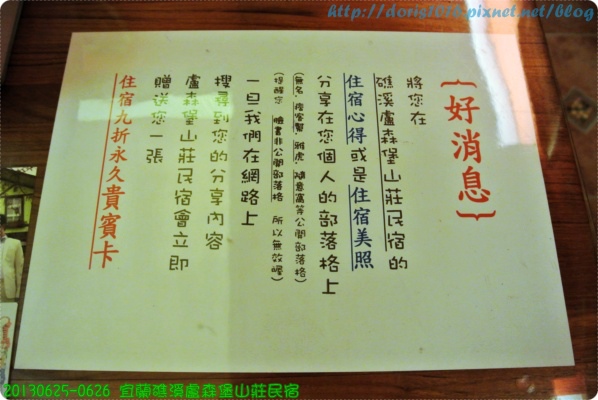 http://doris1018.pixnet.net/blog
{好消息}
將您在
礁溪盧森堡山莊民宿的
住宿心得或是住宿美照
分享在您個人的部落格上
(無名、痞客幫、雅虎、隨意窩等公開部落格)
(提醒您 臉書非公開部落格 所以無效喔)
一旦我們在網路上
搜尋到您的分享內容
盧森堡山莊民宿會立即
贈送您一張
住宿九折永久貴賓卡
20130625-0626 宜蘭礁溪盧森堡山莊民宿